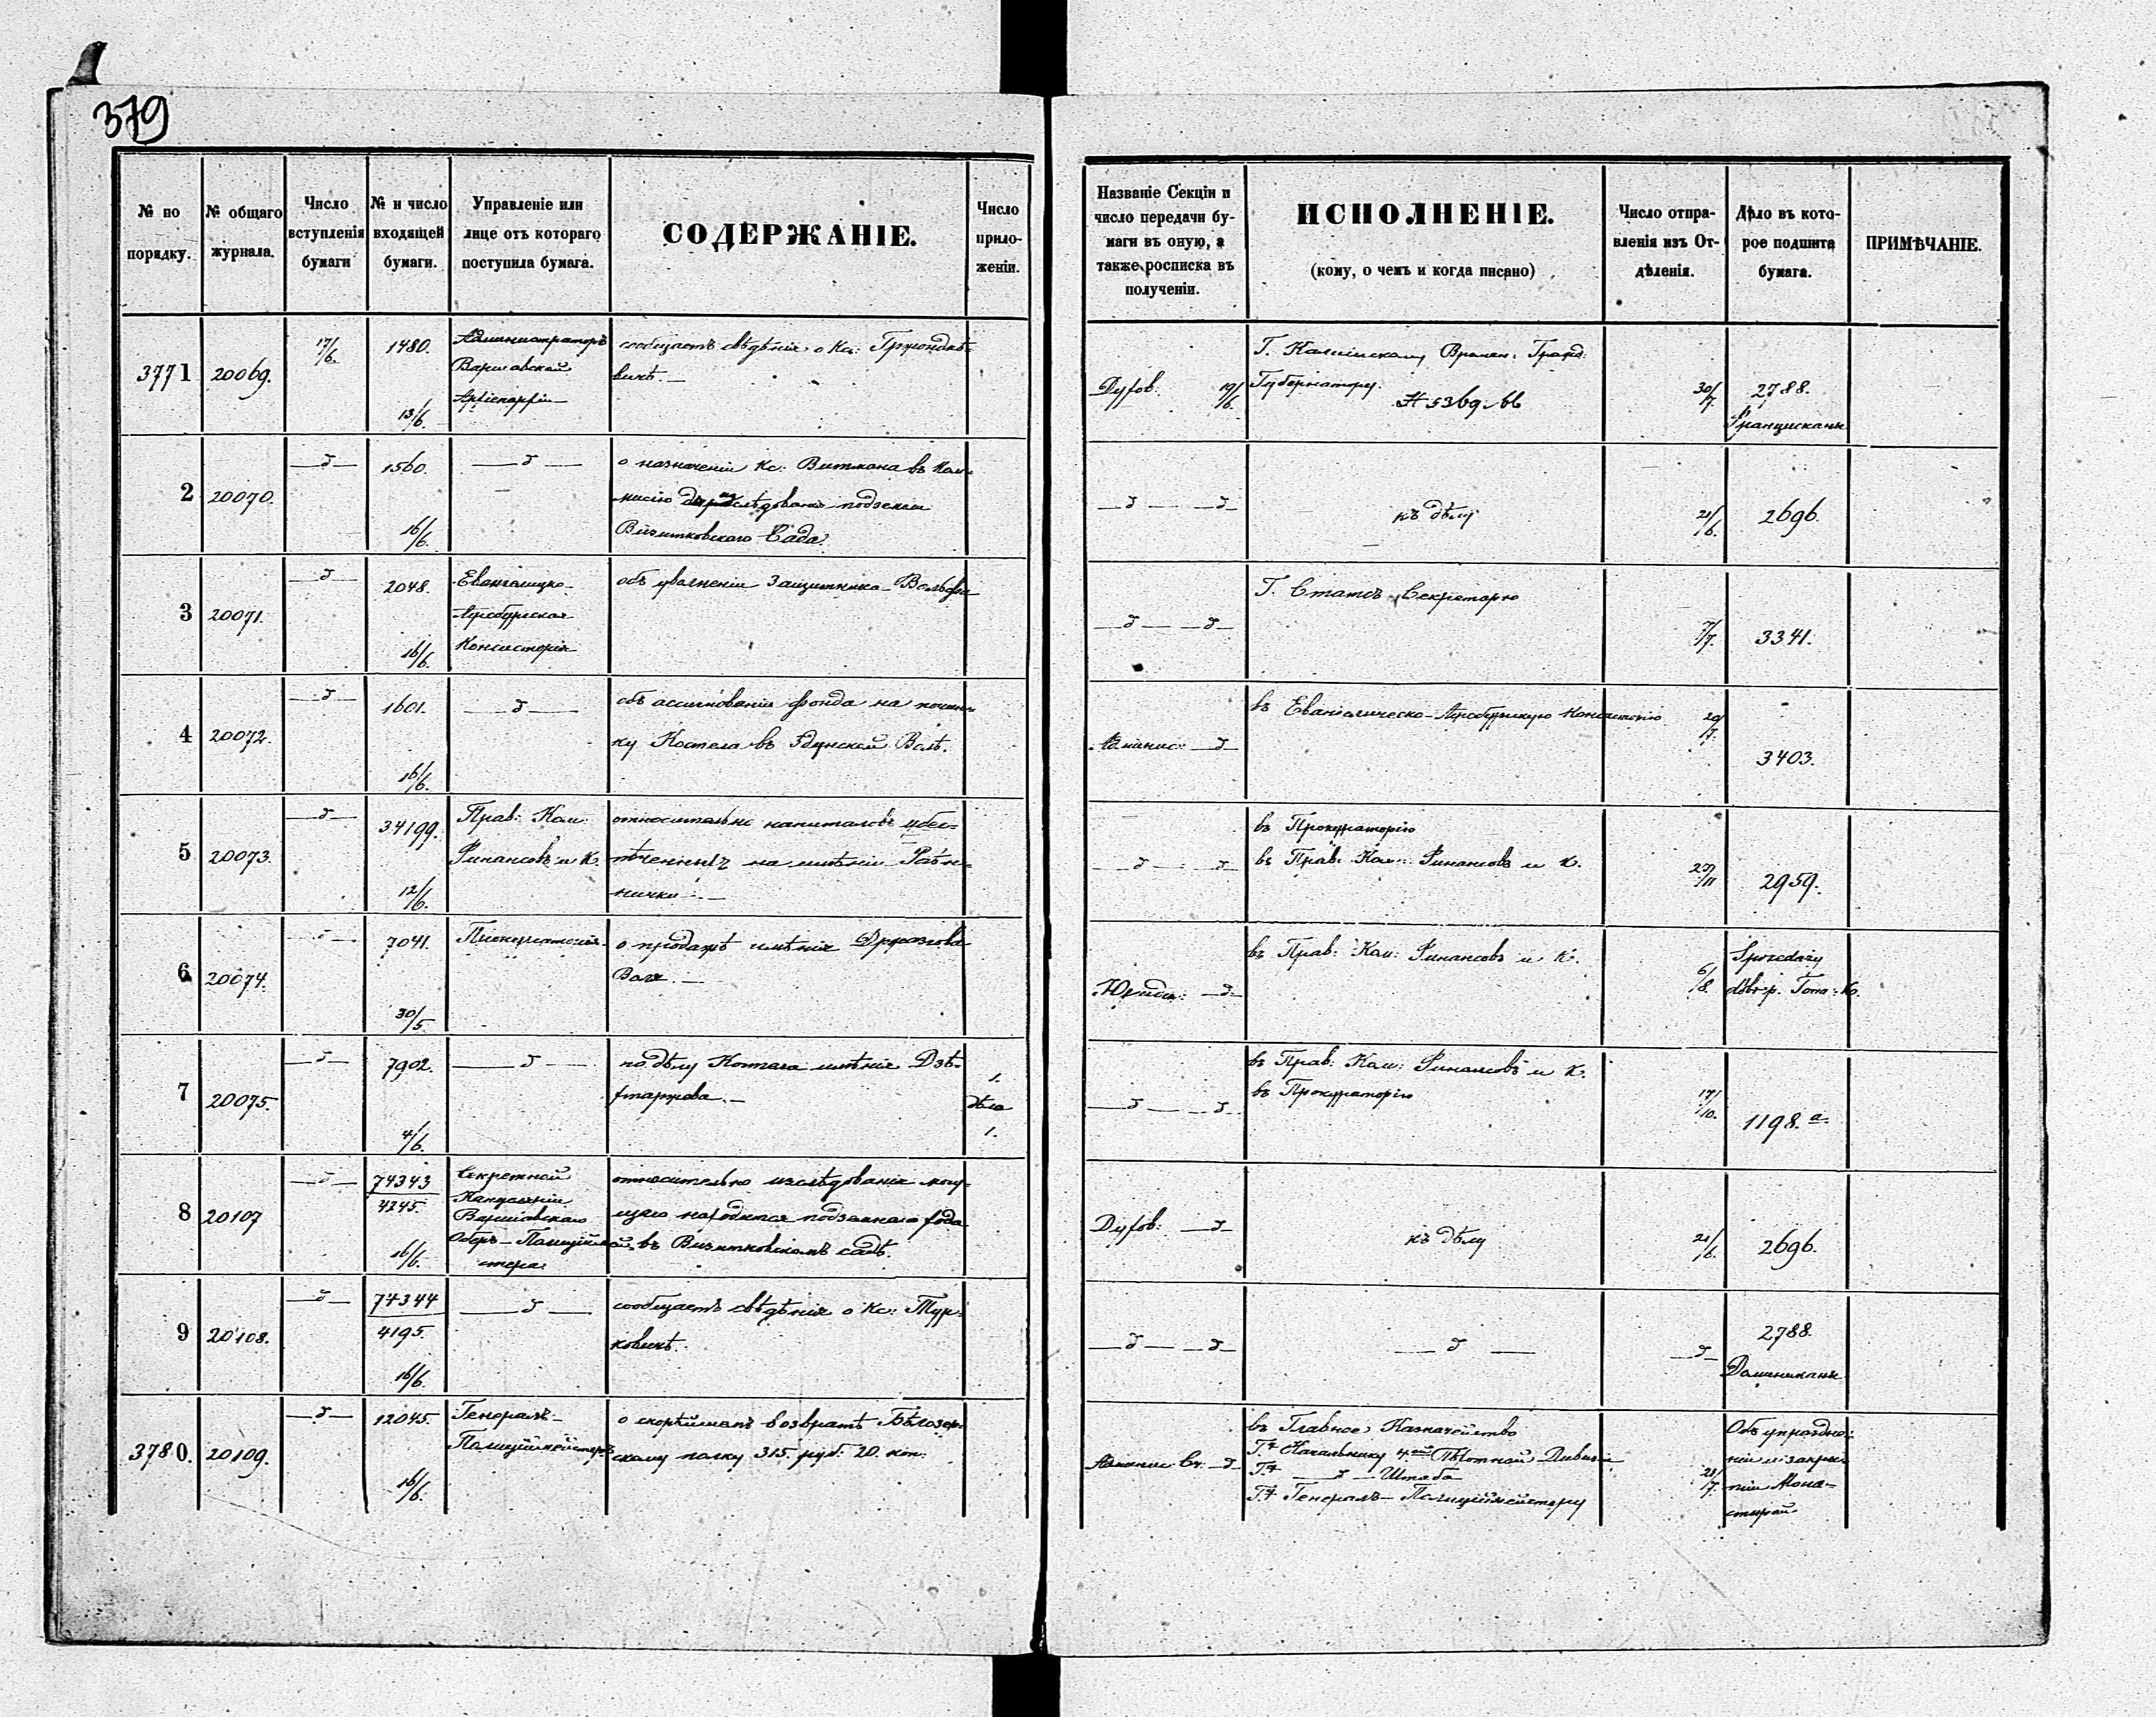 379
№ по порядку.
№ общаго журнала.
Число вступленія бумаги
№ и число входящей бумаги.
Управленіе или лице отъ котораго поступила бумага.
СОДЕРЖАНІЕ.
Число приложеніи.
Названіе Секціи и число передачи бумаги въ оную, а также росписка въ полученіи.
ИСПОЛНЕНІЕ.
(кому, о чемъ и когда писано)
Число отправленія изъ Отдѣленія.
Дѣло въ которое подшита бумага.
ПРИМѢЧАНІЕ.
3771
20069.
17/6.
1480.
13/6.
Администраторъ
Варшавской
Архіепархіи
сообщаетъ свѣдѣнія о Кс:
вичѣ.
Духов. 19/6.
Г. Калишскому Времен: Гражд:
Губернатору.
30/7.
2788.
Францискане
2
20070.
—д—
1560.
16/6.
—д—
о назначеніи Кс: Витмана въ Ком-
мисію
Визитковскаго Сада.
—д— —д—
къ дѣлу
21/6.
2696.
3
20071.
—д—
2048.
16/6.
Евангелицко-
Аугсбургская
Консисторія
объ увольненіи Защитника Вольфа
—д— —д—
Г. Статсъ-Секретарю
7/7.
3341.
4
20072.
—д—
1601.
16/6.
—д—
объ ассигнованіи фонда на почин-
ку Костела въ Здунской Волѣ.
Админис: —д—
въ Евангелическо-Аугсбургскую Консисторію
20/7.
3403.
5
20073.
—д—
34199.
12/6.
Прав: Ком:
Финансовъ и К.
относительно капиталовъ обез-
печенныхъ на имѣніи
—д— —д—
въ Прокураторію
въ Прав: Ком: Финансовъ и К.
2959.
6
20074.
—д—
7041.
30/5.
Прокураторія
о продажѣ имѣнія
Воля.
Юриди: —д—
въ Прав: Ком: Финансовъ и К.
6/8.
Sprzedaży
dóbr p.
7
20075.
—д—
7902.
4/6.
—д—
по дѣлу Коттега имѣнія
1.
дѣло
1.
—д— —д—
въ Прав: Ком: Финансовъ и К.
въ Прокураторію
17/10.
1198. а.
8
20107
—д—
74343
4245.
16/6.
Секретной
Канцеляріи
Варшавскаго
Оберъ-Полиціймей-
стера
относительно изслѣдованія могу-
щаго находится подземнаго хода
въ Визитковскомъ садѣ.
Духов: —д—
къ дѣлу
21/6.
2696.
9
20108.
—д—
74344
4195.
16/6.
—д—
сообщаетъ свѣдѣнія о Кс: Тур-
ковичѣ.
—д— —д—
—д—
—д—
2788.
Доминикане
3780.
20109.
—д—
12045.
16/6.
Генералъ-
Полиціймейстеръ
о скорѣйшемъ возвратѣ Бѣлозер-
скому полку 315. руб. 20. коп:
—д
въ Главное Казначейство
Г. Начальнику 4.ой Пѣхотной Дивизіи
Г. —д— Штаба
Г. Генералъ-Полиціймейстеру
21/7.
Объ упраздне-
ніи и закры-
тіи Мона-
стырей